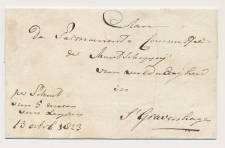 Aan
De Permanente Commissie
der Maatschappij
van weldadigheid
in
S'Gravenhage
per Schuit
van 5 uuren
van Leyden
13 octob 1823